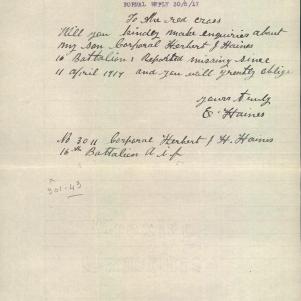 FORMAL REPLY 30/8/17
To the red cross
Will you kindly make enquiries about
my son Corporal Herbert J Haines
16 Battalion: Reported missing since
11 april 1917 and you will greatly oblige
yours truly
E Haines
No 3011 Corporal Herbert J H. Haines
16th Battalion A.i.f
301-43